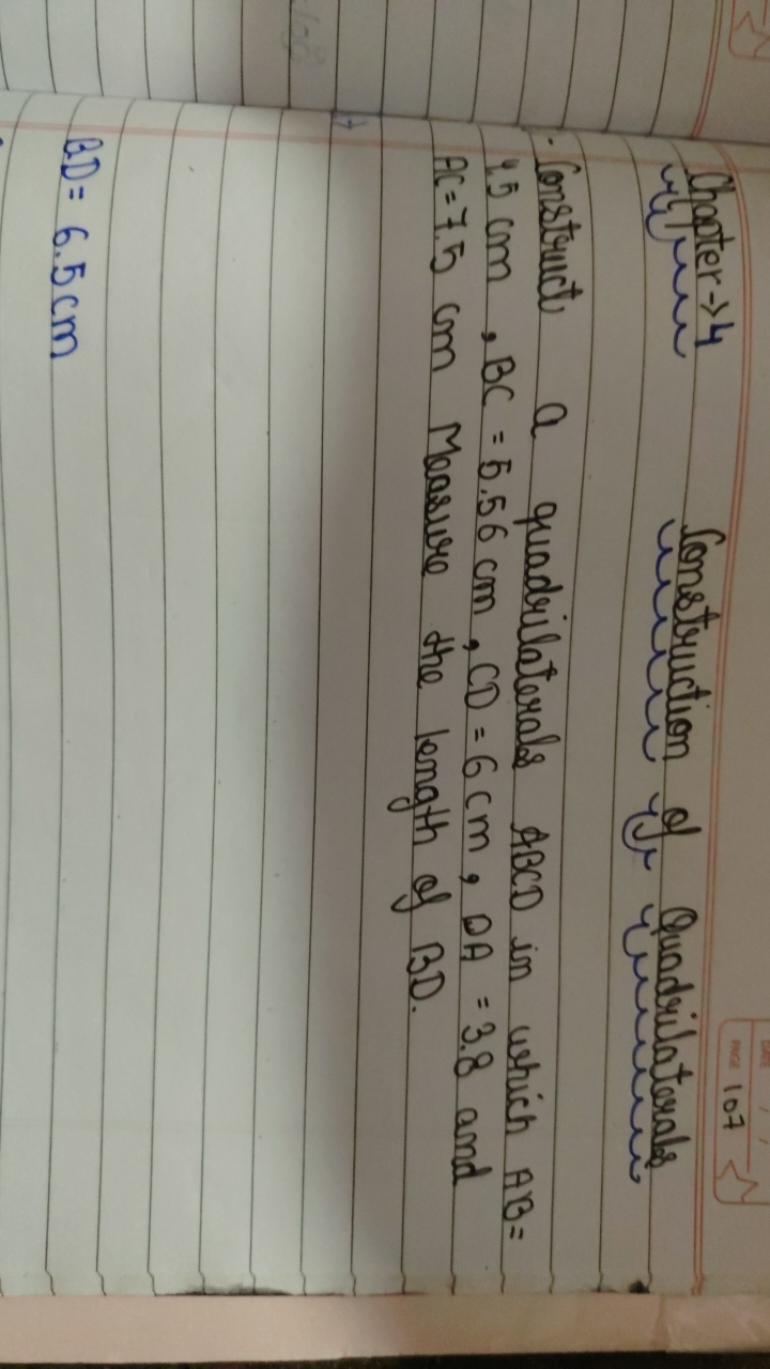 PAGE 107
Chapter → 4 Construction of Quadrilaterals
Construct a quadrilaterals ABCD in which AB =
4.5 cm, BC = 5.56 cm, CD = 6 cm, DA = 3.8 and
AC = 7.5 cm Measure the length of BD.
BD = 6.5 cm